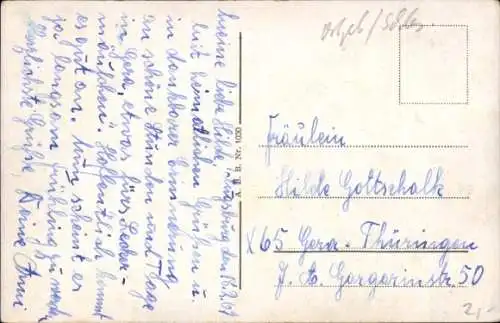 Meine liebe Hilde! Augsburg, den 18.2.67
Mit heimatlichen Grüßen u.
in dankbarer Erinnerung
an schöne Stunden und Tage
in Gera, etwas fürs Lecker-
mäulchen. Hoffentlich kommt
es gut an. Nun scheint es
ja langsam Frühling zu werden
Herzlichste Grüße Deine Anni
A. B. B. Nr. 1030
Fräulein
Hilde Gottschalk
X 65 Gera - Thüringen
J. A. Gagarinstr. 50
2,-